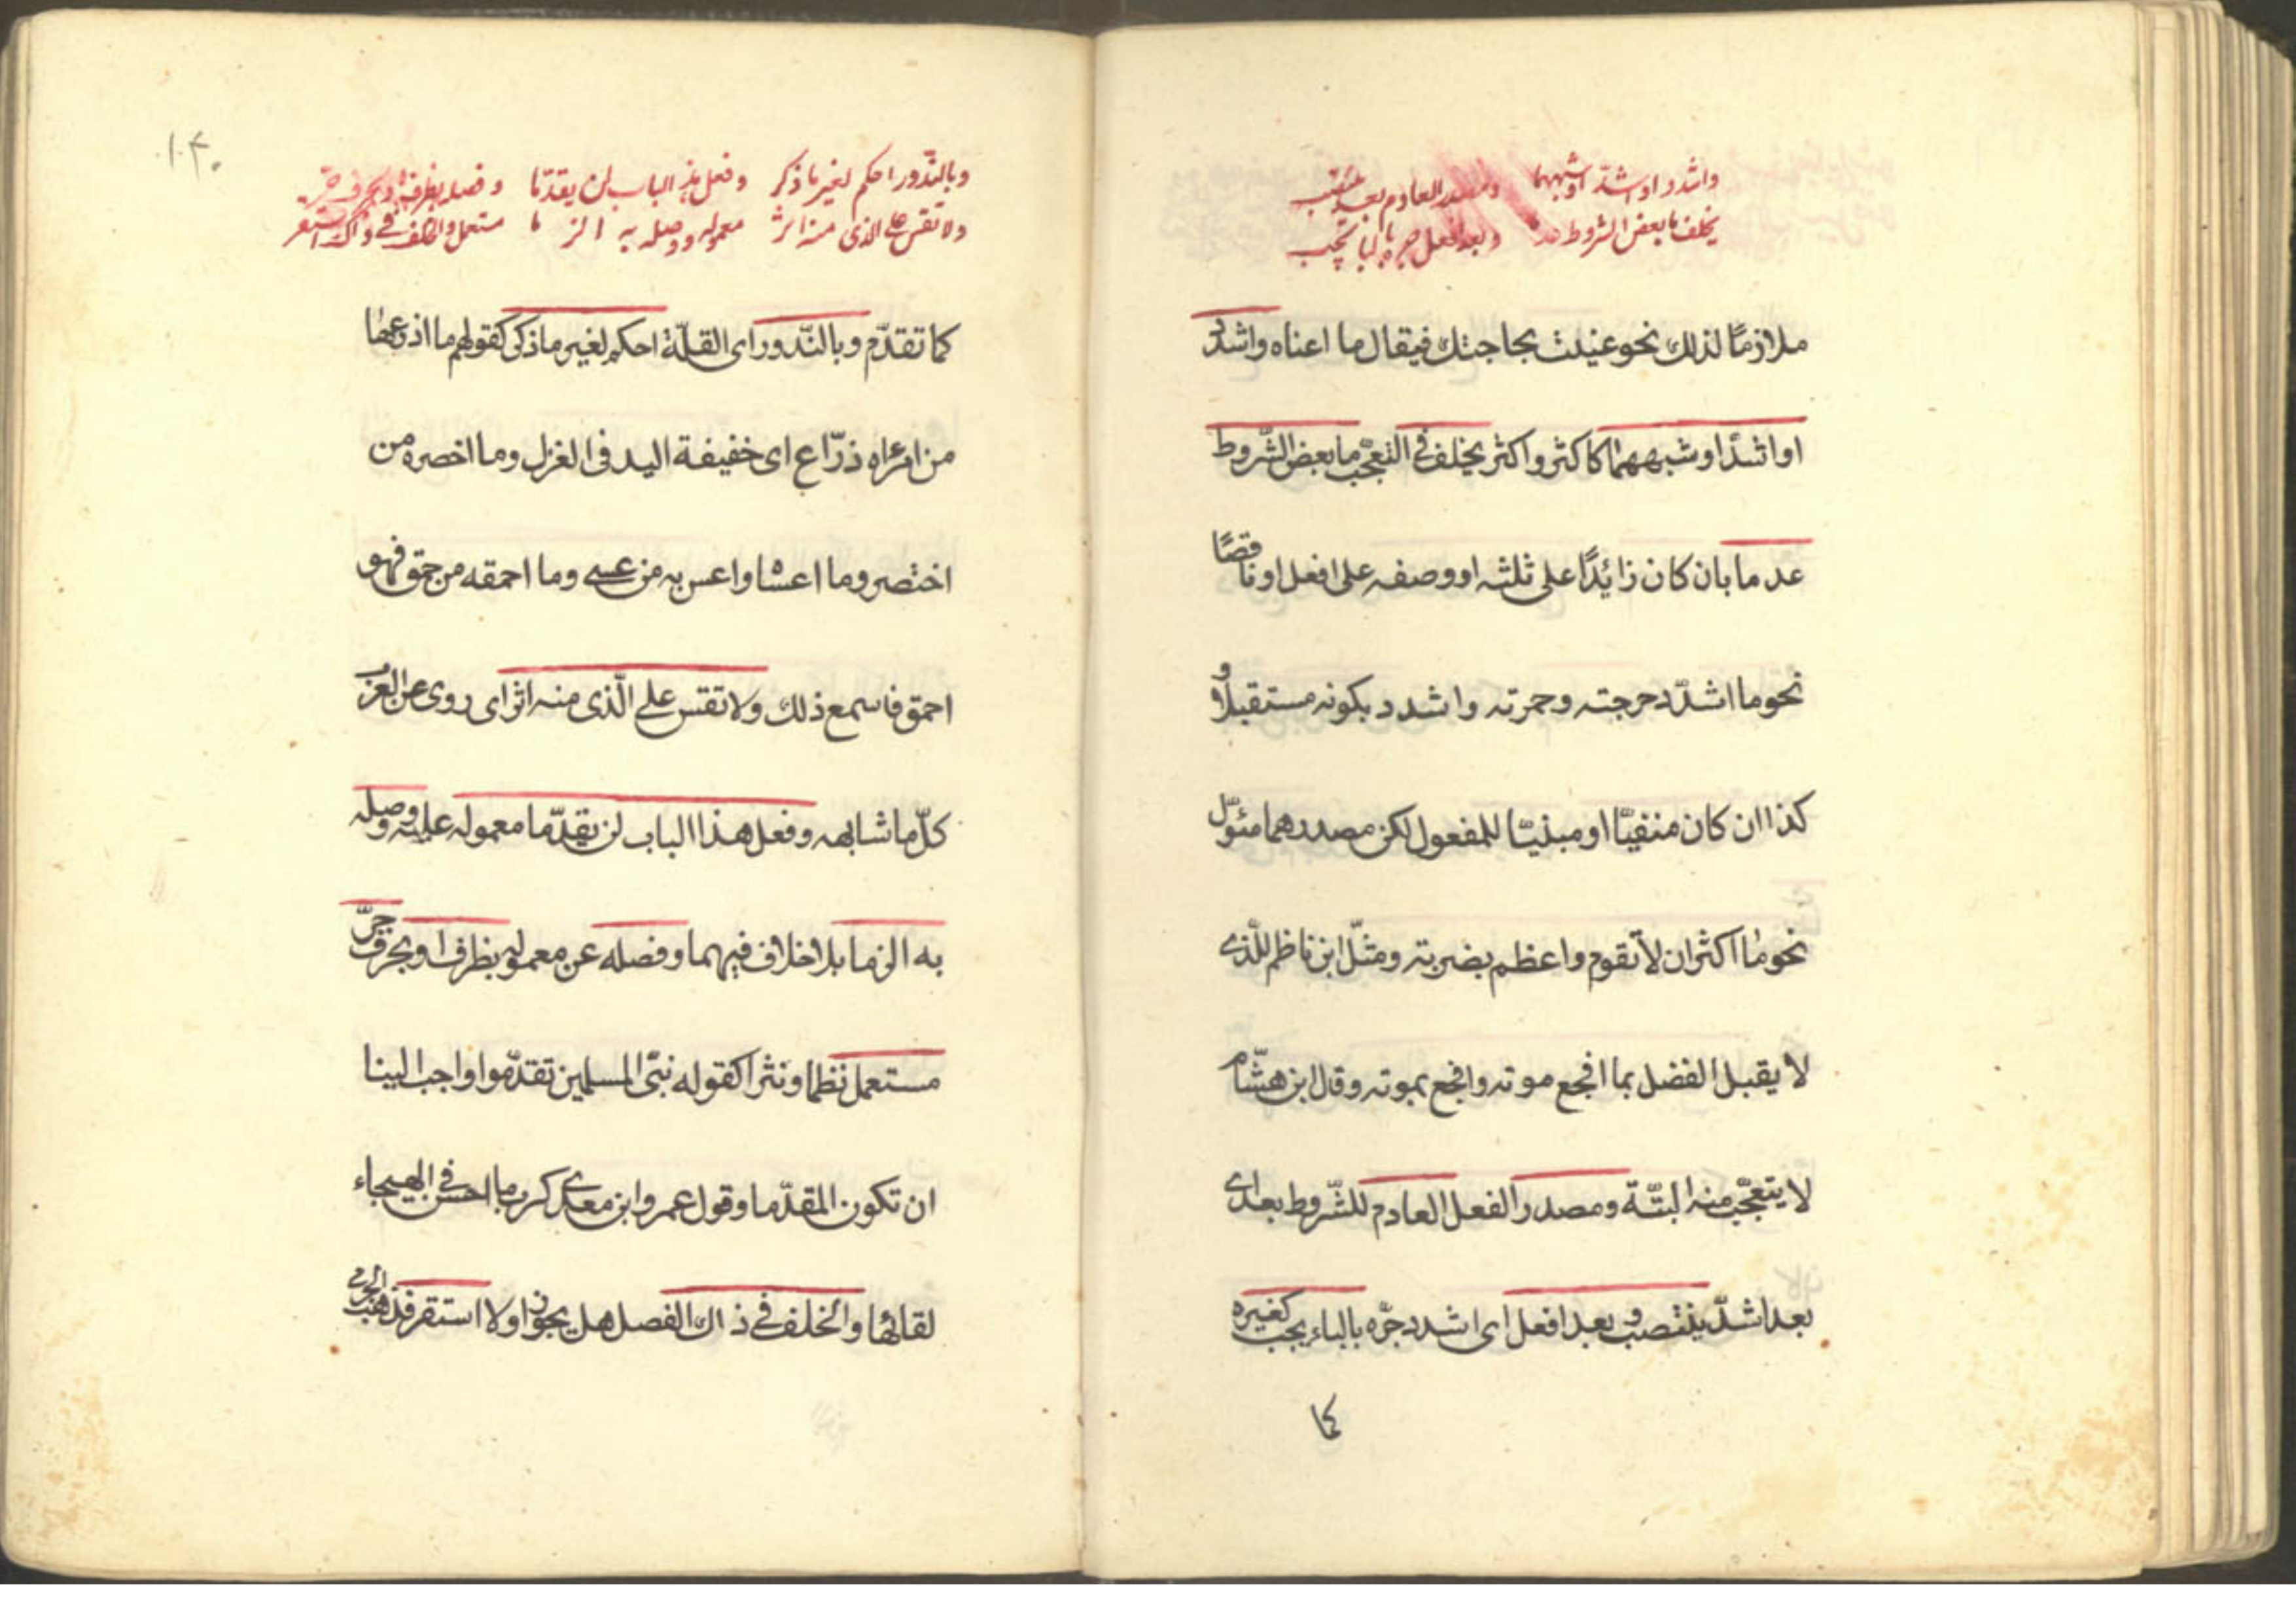 واشدد او اشدّ او شبههما ومصدر العادم بعد ينتصب
يخلف ما بعض الشروط عدما وبعد افعل جره بالبا يجب
ملازمًا لذلك نحو عنيلت بحاجتك فيقال ما اعناه واشدد
او اشدّ او شبههما كاكثر واكثر يخلف فى التعجّب ما بعض الشّروط
عدما بان كان زائدًا على ثلثه او وصفه على افعل او ناقصًا
نحو ما اشدّ دحرجته وحمرته واشدد بكونه مستقبلا و
كذا ان كان منفيّا او مبنيّا للمفعول لكن مصدرهما مئوّل
نحو ما اكثر ان لا تقوم واعظم بضربته ومثّل ابن ناظم للّذى
لا يقبل الفضل بما افجع موته وافجع بموته وقال ابن هشّام
لا يتعجّب منه البتّة ومصدر الفعل العادم للشّروط بعد اى
بعد اشدّ ينتصب و بعد افعل اى اشدد جرّه بالباء يجب كغيره
كما
۱۴۰
وبالنّدور احكم لغير ما ذكر وفعل هذا الباب لن يقدّما وفصله بظرف او بحرف جر
ولا تقس على الذى منه اثر معموله ووصله به الز ما مستعمل والخلف فى ذاك استقر
كما تقدّم وبالنّدور اى القلّة احكم لغير ما ذكر كقولهم ما اذرعها
من امراه ذرّاع اى خفيفة اليد فى الغزل وما اخصره من
اختصر وما اعساه واعس به من عسى وما احمقه من حمق فهو
احمق فاسمع ذلك ولا تقس على الّذى منه اثر اى روى عن العرب
كلّ ما شابهه وفعل هذا الباب لن يقدّما معموله عليه ووصله
به الزما بلا خلاف فيهما وفصله عن معموله بظرف او بحرف جرّ
مستعمل نظما ونثرا كقوله نبّى المسلمين تقدّموا واجب الينا
ان تكون المقدّما وقول عمرو ابن معدى كرب ما احسن فى الهيجاء
لقائها والخلف فى ذاك الفصل هل يجوز او لا استقر فذهب الجرمى